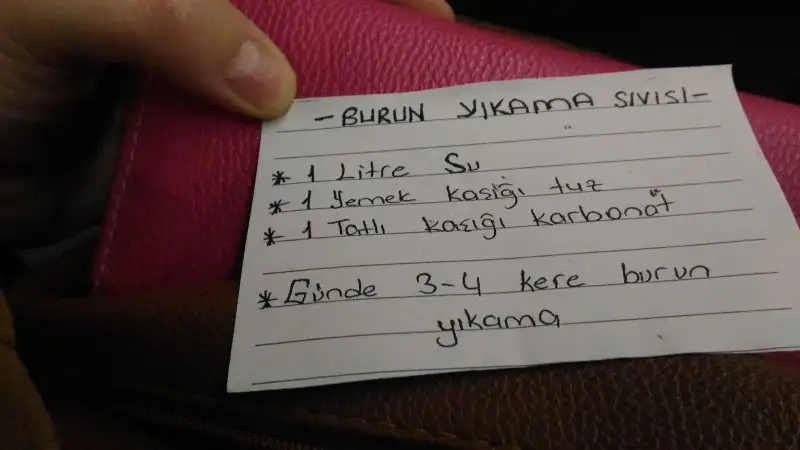 - BURUN YIKAMA SIVISI -
* 1 Litre Su
* 1 Yemek kaşığı tuz
* 1 Tatlı kaşığı karbonat
* Günde 3-4 kere burun
yıkama